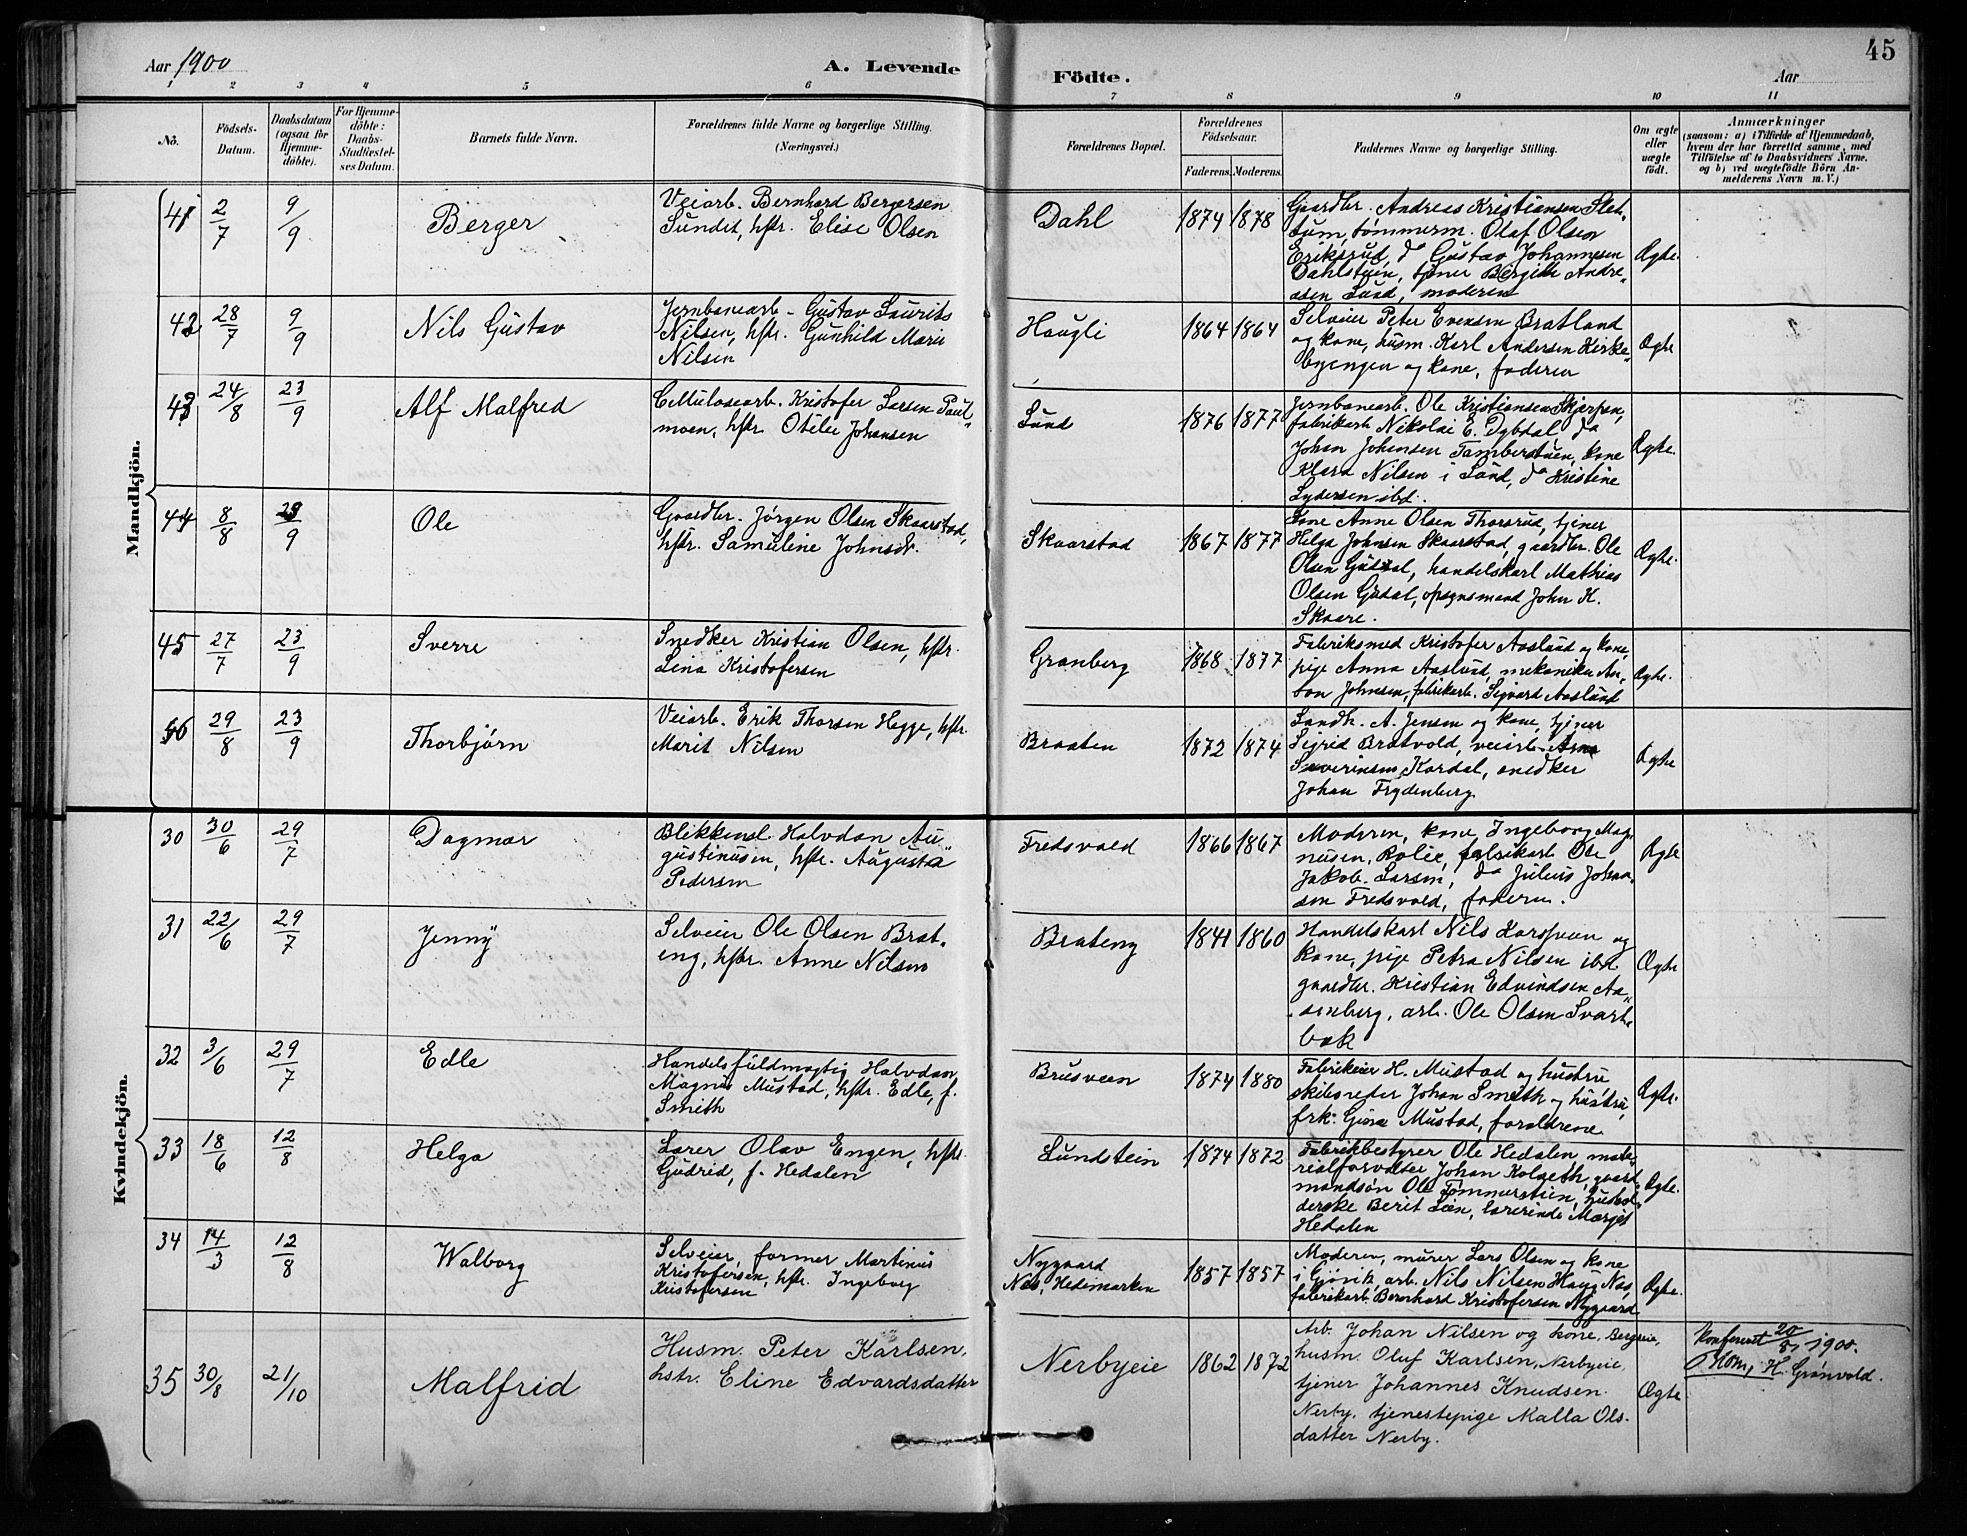 45
Aar 1900
A. Levende
Födte.
Aar
1 2 3 4 5 6 7 8 9 10 11
No.
Födsels-
Datum.
Daabsdatum
(ogsaa for
Hjemme-
döbte).
For Hjemme-
döbte:
Daabs-
Stadfæstel-
ses Datum.
Barnets fulde Navn.
Forældrenes fulde Navne og borgerlige Stilling.
(Næringsvei.)
Forældrenes Bopæl.
Forældrenes
Födselsaar.
Faderens. Moderens.
Faddernes Navne og borgerlige Stilling.
Om ægte
eller
uægte
födt.
Anmærkninger
(saasom: a) i Tilfælde af Hjemmedaab,
hvem der har forrettet samme, med
Tilföielse af to Daabsvidners Navne,
og b) ved uægtefödte Börn An-
melderens Navn m. V.)
Mandkjön.
41 2/7 9/9 Berger
Veiarb. Bernhard Bergersen
Sundet, hstr. Elise Olsen
Dahl 1874 1878
Gaardbr. Andreas Kristiansen Slet-
tum, tømmerm. Olaf Olsen
Eriksrud, do Gustav Johannesen
Dahlstuen, tjener Bergitte Andre-
asen Lund, moderen
Ægte.
42 28/7 9/9 Nils Gustav
Jernbanearb. Gustav Laurits
Nilsen, hstr. Gunhild Marie
Nilsen
Haugli 1864 1864
Selveier Peter Evensen Bratland
og kone, husm. Karl Andersen Kirke-
byengen og kone, faderen
Ægte
43 24/8 23/9 Alf Malfred
Cellulosearb. Kristofer Larsen Paul-
moen, hstr. Otilie Johansen
Lund 1876 1877
Jernbanearb. Ole Kristiansen Skjerpen,
fabrikarb. Nikolai E. Dybdal, do
Johan Johansen Tamberstuen, kone
Klara Nilsen i Lund, do Kristine
Lydersen ibd.
Ægte.
44 8/8 23/9 Ole
Gaardbr. Jørgen Olsen Skaarstad,
hstr. Samuline Johnsdr.
Skaarstad 1867 1877
Kone Anne Olsen Thorsrud, tjener
Helga Johnsen Skaarstad, gaardbr. Ole
Olsen Gusdal, handelskarl Mathias
Olsen Gusdal, opsynsmand John K.
Skaare.
Ægte.
45 27/7 23/9 Sverre
Snedker Kristian Olsen, hstr.
Lina Kristofersen
Granberg 1868 1877
Fabriksmed Kristofer Aaslund og kone,
pige Anna Aaslund, mekaniker An-
ton Johnsen, fabrikarb. Sigvard Aaslund
Ægte.
46 29/8 23/9 Thorbjørn
Veiarb. Erik Thorsen Hegge, hstr.
Marit Nilsen
Braaten 1872 1874
Landh. A. Jensen og kone, tjener
Sigrid Bratvold, veiarb. Arne
Severinsen Kordal, snedker
Johan Frydenberg.
Ægte
Kvindekjön.
30 30/6 29/7 Dagmar
Blikkensl. Halvdan Au-
gustinusen, hstr. Augusta
Pedersen
Fredsvold 1866 1867
Moderen, kone Ingeborg Mag-
nusen, Rolie, fabrikarb. Ole
Jakob. Larsen, do Julius Johan-
sen Fredsvold, faderen.
Ægte
31 22/6 29/7 Jenny
Selveier Ole Olsen Brat-
eng, hstr. Anne Nilsen
Brateng 1841 1860
Handelskarl Nils Korsveen og
kone, pige Petra Nilsen ibd.
gaardbr. Kristian Edvindsen Aa-
senberg, arb. Ole Olsen Svart-
bæk
Ægte
32 3/6 29/7 Edle
Handelsfuldmægtig Halvdan
Magnus Mustad, hstr. Edle, f.
Smith
Brusveen 1874 1880
Fabrikeier H. Mustad og hustru
skibsreder Johan Smith og hustru,
frk. Gina Mustad, forældrene.
Ægte.
33 18/6 12/8 Helga
Lærer Olav Engen, hstr.
Gudrid, f. Hedalen
Lundstein 1874 1872
Fabrikbestyrer Ole Hedalen mate-
rialforvalter Johan Kolseth, gaard-
mandsøn Ole Tømmerstuen, hushol-
derske Berit Lien, lærerinde Margit
Hedalen
Ægte.
34 14/3 12/8 Walborg
Selveier, former Martinus
Kristofersen, hstr. Ingeborg
Kristofersen
Nygaard
Nes, Hedemarken 1857 1857
Moderen, murer Lars Olsen og kone
i Gjøvik, arb. Nils Nilsen Haug Nes,
fabrikarb. Bernhard Kristofersen Nygaard
Ægte.
35 30/8 21/10 Malfrid
Husm. Peter Karlsen,
hstr. Eline Edvardsdatter
Nerbyeie 1862 1872
Arb. Johan Nilsen og kone, Bergseie,
husm. Oluf Karlsen, Nerbyeie,
tjener Johannes Knudsen
Nerby, tjenestepige Kalla Ols-
datter Nerby.
Ægte
1900.
H. Grønvold.